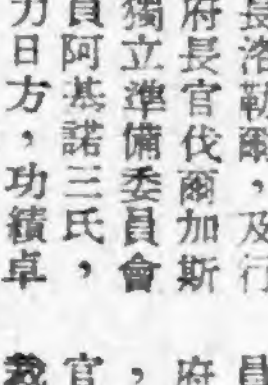 長洛勒爾，及行
府長官伐爾加斯
獨立準備委員會
員阿基諾三氏，
力日方，功績卓
府
，
官
裁